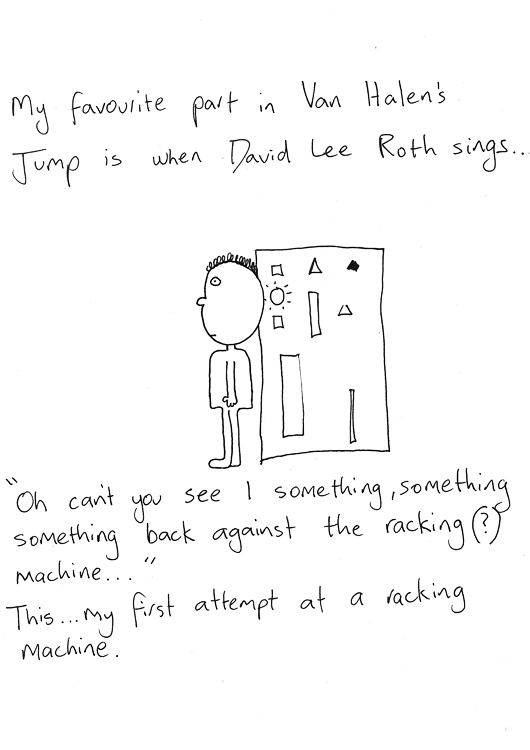 My favourite part in Van Halen's
Jump is when David Lee Roth sings...
"Oh can't you see I something, something
something back against the racking (?)
machine..."
This...my first attempt at a racking
machine.